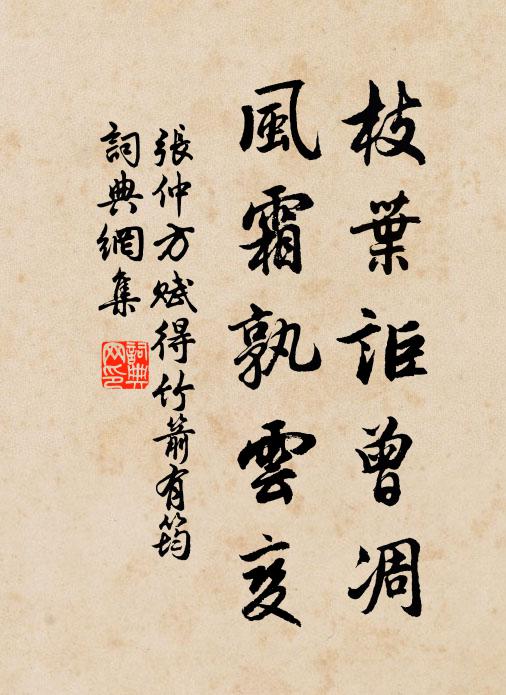 枝葉詎曾凋
風霜孰雲变
張仲方賦得竹箭有筠
詞典網集
詞典網印